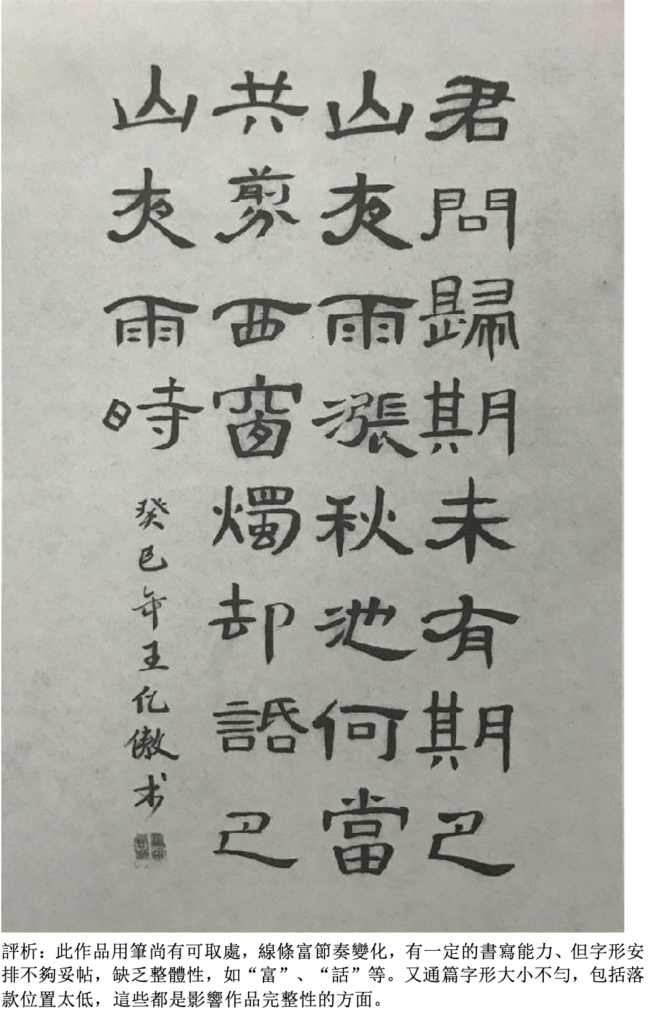 君問歸期未有期巴
山夜雨漲秋池何當
共剪西窗燭却話巴
山夜雨時
癸巳年王亿傲书
評析：此作品用筆尚有可取處，線條富節奏變化，有一定的書寫能力、但字形安
排不夠妥帖，缺乏整體性，如“富”、“話”等。又通篇字形大小不勻，包括落
款位置太低，這些都是影響作品完整性的方面。